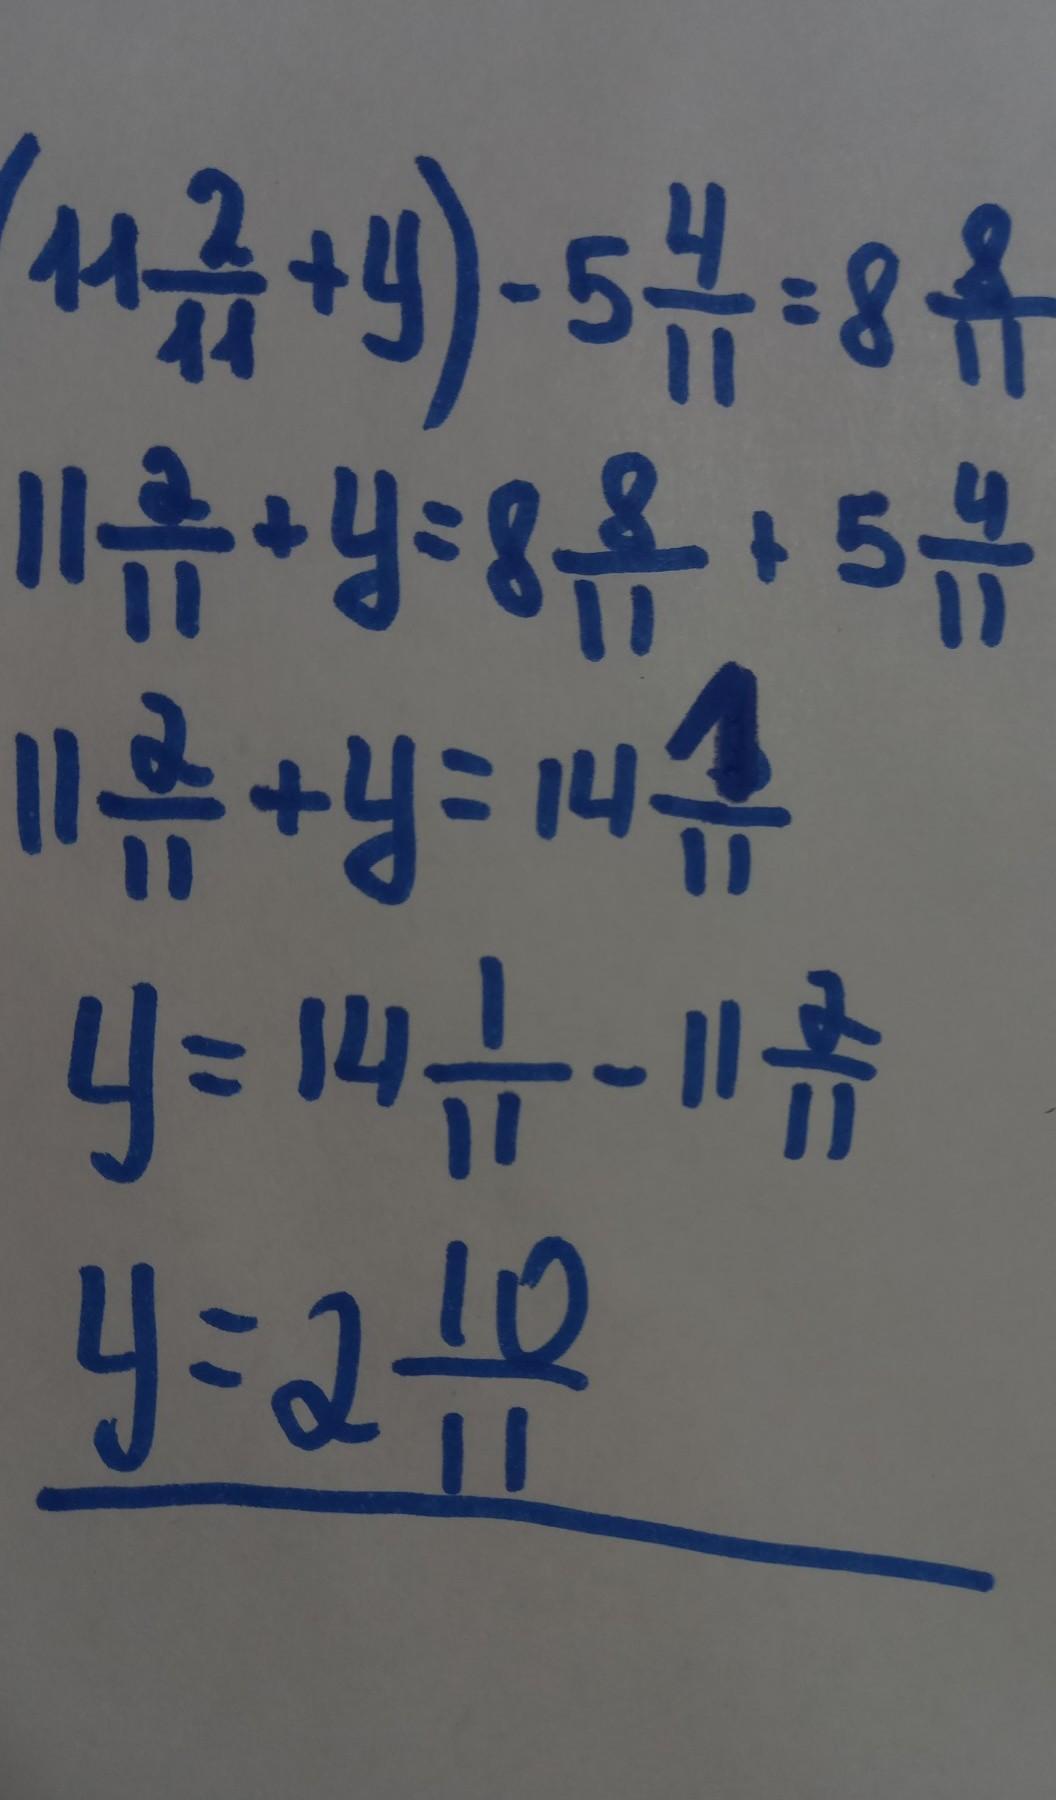 (11 2/11 + y) - 5 4/11 = 8 8/11
11 2/11 + y = 8 8/11 + 5 4/11
11 2/11 + y = 14 1/11
y = 14 1/11 - 11 2/11
y = 2 10/11